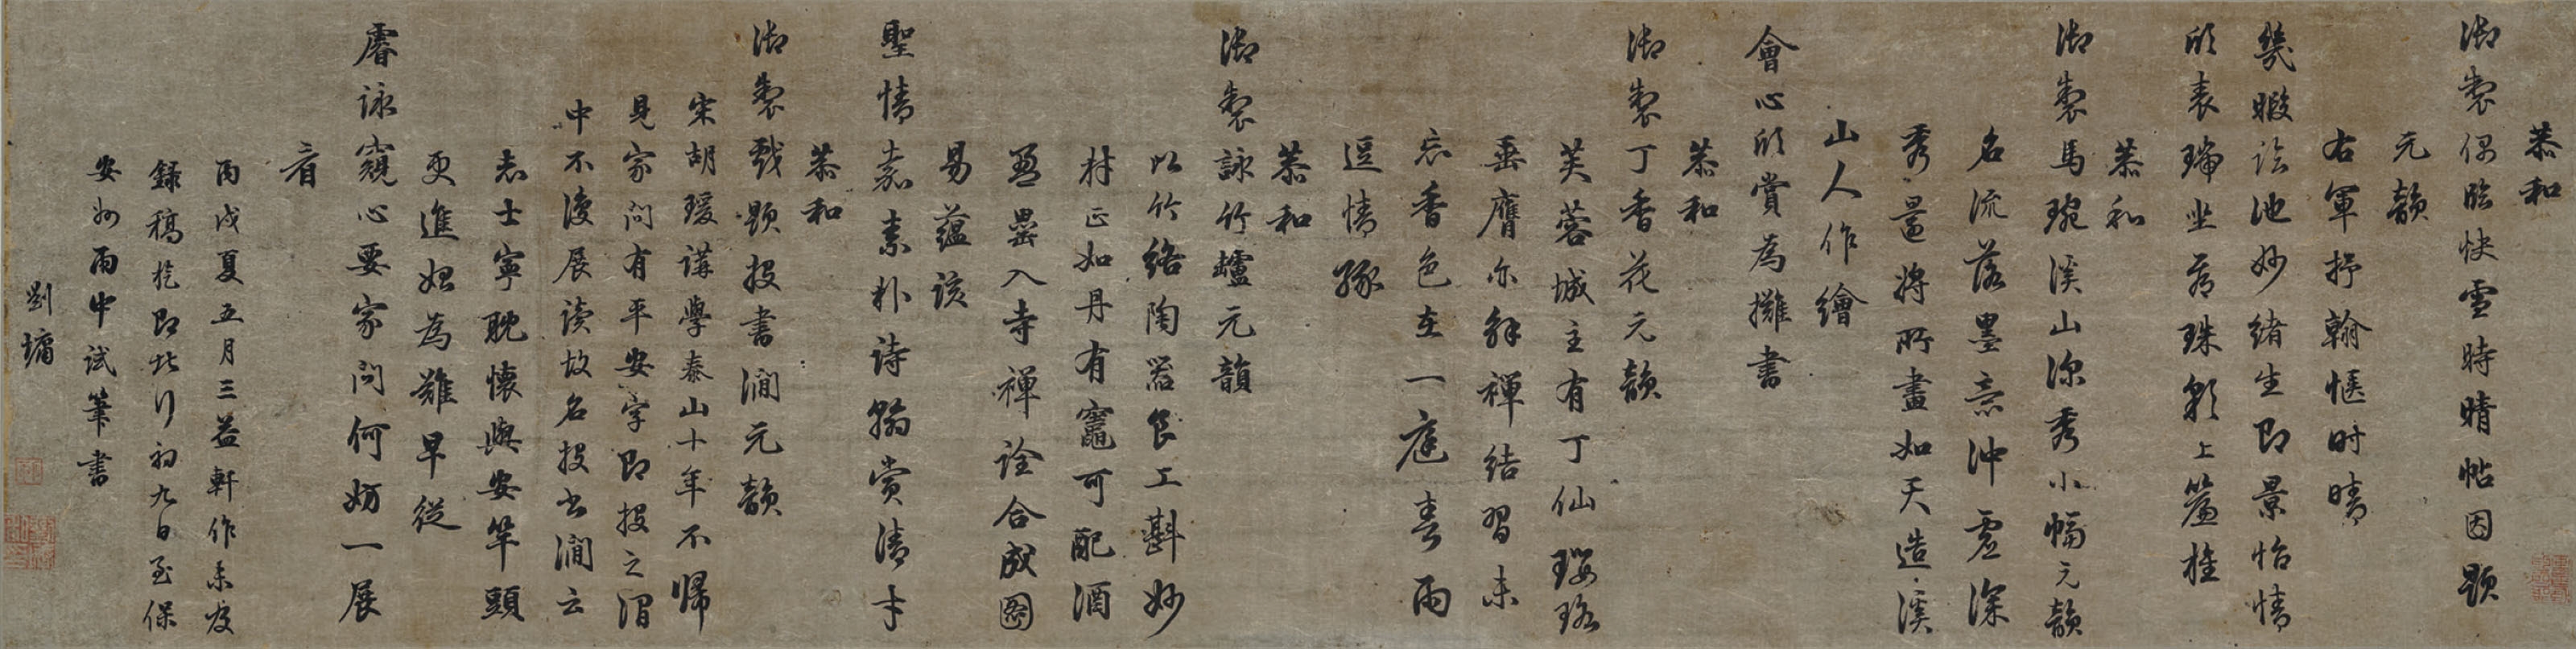 恭和
御製偶臨快雪時晴帖因題
元韻
右軍抒翰愜时晴
幾暇臨池妙緒生即景怡情
欣表瑞坐看珠彩上簾旌
恭和
御製馬琬溪山深秀小幅元韻
名流落墨意沖虛深
秀還將所畫如天造溪
山人作繪
會心欣賞為攤書
恭和
御製丁香花元韻
芙蓉城主有丁仙瓔珞
垂膺亦解禪結習未
忘香色在一庭春雨
逗情緣
恭和
御製詠竹爐元韻
以竹絡陶器良工斟妙
材正如丹有竈可配酒
盈罍入寺禪詮合成圖
易蘊該
聖情嘉素朴詩觴賞清才
恭和
御製戲題投書澗元韻
宋胡瑗講學泰山十年不歸
見家问有平安字即投之澗
中不復展读故名投书澗云
志士寧耽懷與安竿頭
更進始為難早從
睿詠窺心要家问何妨一展
看
丙戌夏五月三益軒作未及
錄稿從即北行初九日至保
安州雨中試筆書
劉墉